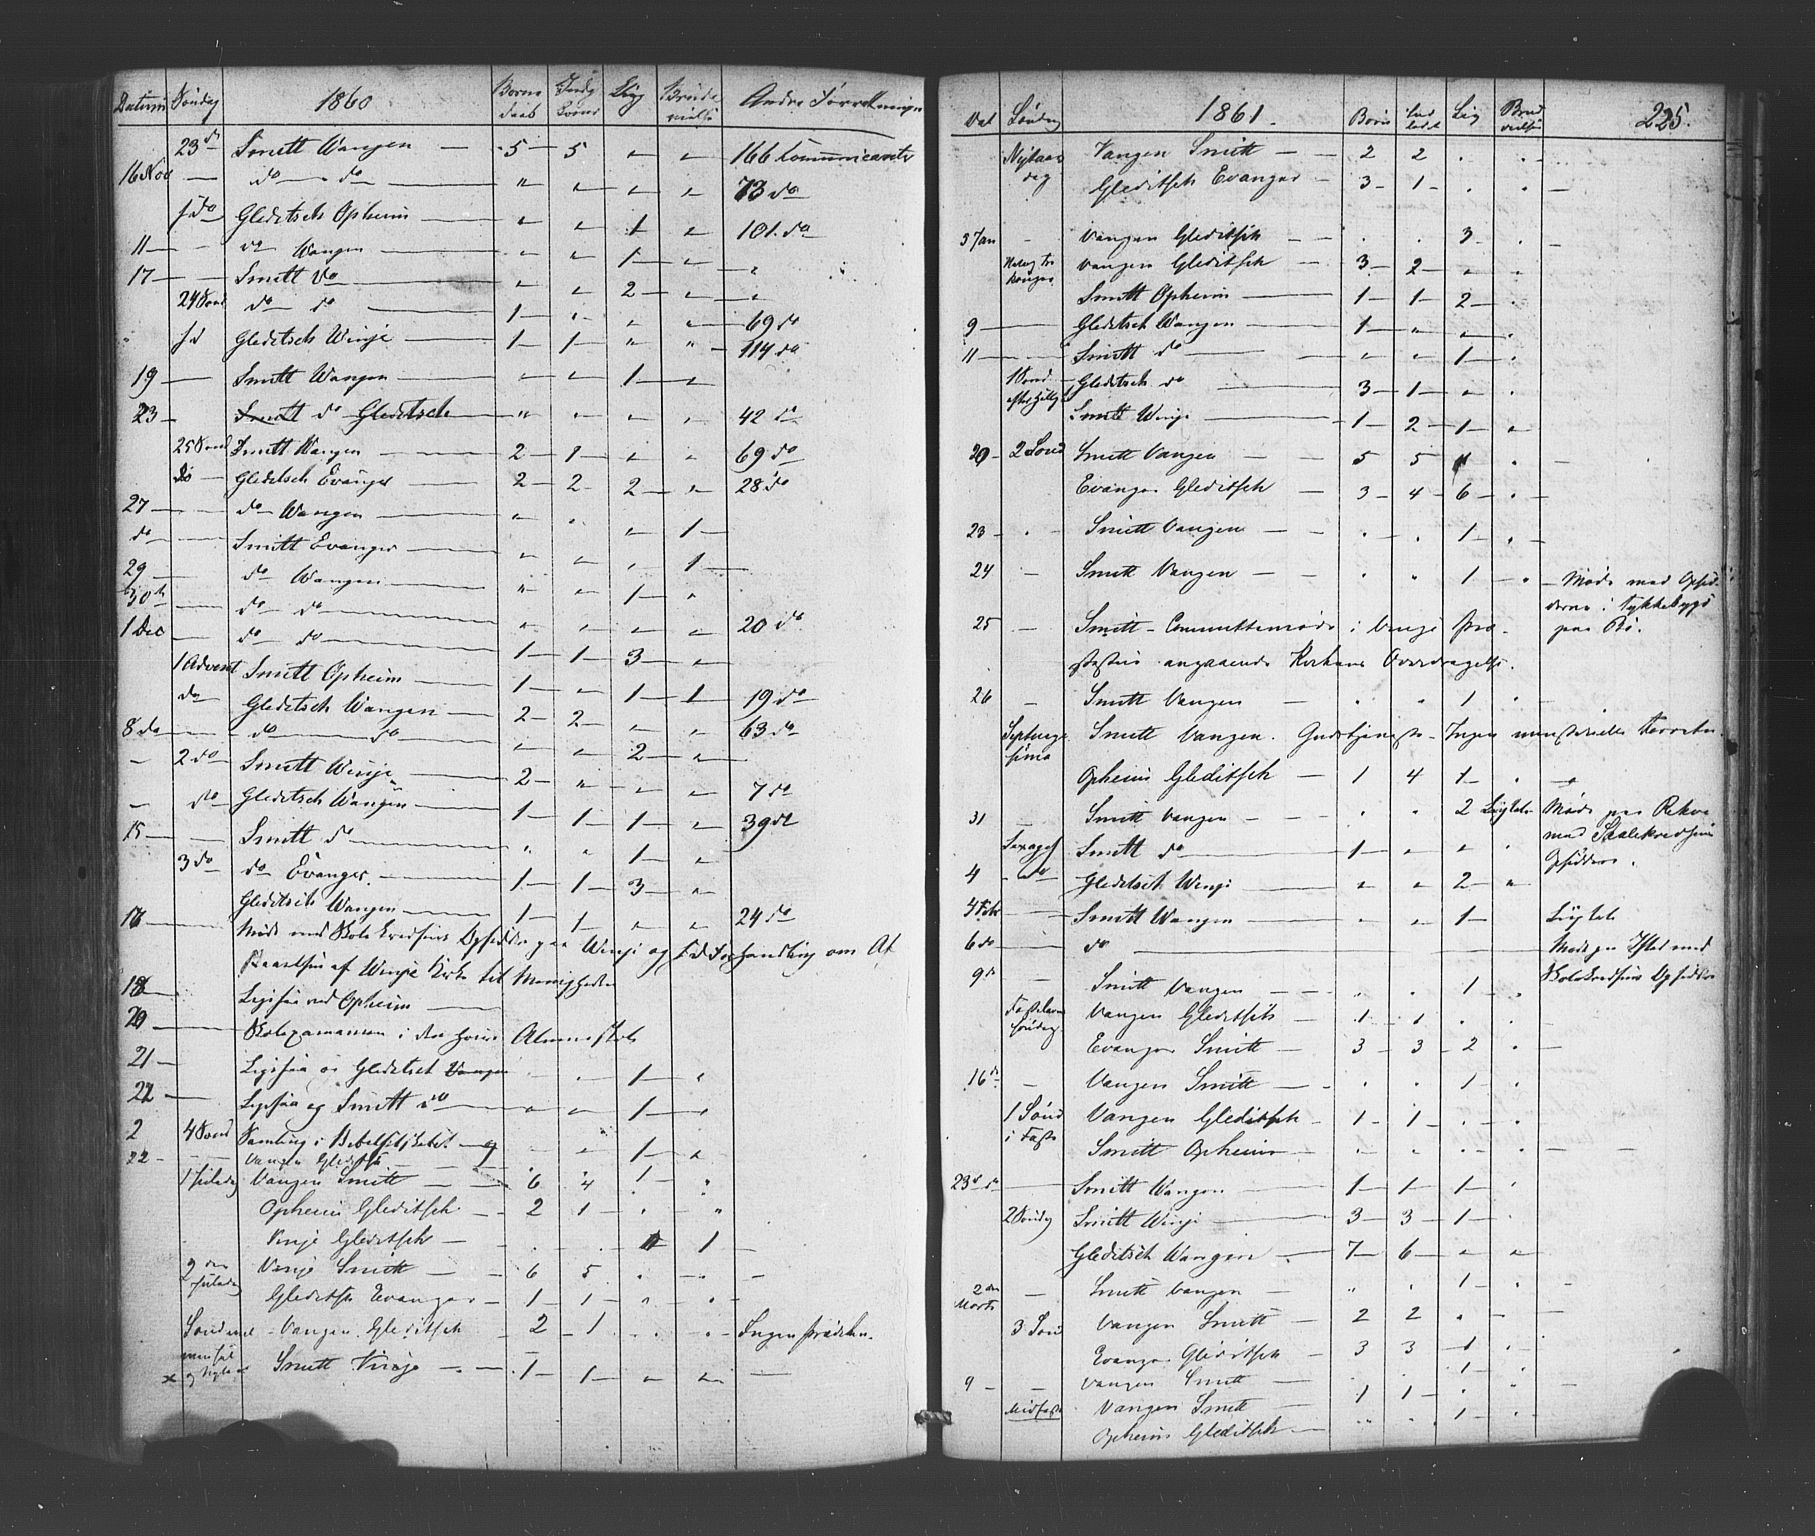 Datum Søndag 1860 Borne daab Indg Lig Brude vielse Andre Forretninger
23d Smitt Wangen — 5 — 5 " " 166 Communicanter
16 Nov — do — do — " " " " 73 do
f do Gleditsch Opheim — " " 1 " 101 do
11 — do Wangen — " " 1 — " "
17 — Smitt do — " " 2 — " "
24 Sønd do do — 1 — " " " 69 do
f d Gleditsch Winje — 1 — 1 — " " 114 do
19 — Smitt Wangen — " " 1 — "
23 — Smitt do Gleditsch — " " " " 42 do
25 Sønd Smitt Wangen — 2 — 1 — " " 69 do
do — Gleditsch Evanger — 2 — 2 — 2 — " 28 do
27 — do Wangen — " " " 1 —
do — Smitt Evanger — " " " 1 —
29 — do Wangen — " " 1 — "
30th — do do — " " " " 20 do
1 Dec — do do — 1 — 1 — 3 — "
1 Advent Smitt Opheim — 1 — " 1 — 1 — 19 do
do Gleditsch Wangen — 2 — 2 — " " 63 do
8 do do do — " " 2 — "
— 2 do Smitt Winje — 2 — " " " 7 do
— do Gleditsch Wangen — 1 — 1 — 1 — " 39 do
15 — Smitt do — " " 1 — "
3 do do Evanger — 1 — 1 — 3 — "
Gleditsch Wangen — 1 — 1 — " " 24 do
16 — Møde med Skolekredsens Opsidde paa Winje og Forhandling om Af
staaelsen af Winje Kirke til Menigheden
18 — Ligfær ved Opheim —
20 — Skolexamen i den høiere Almueskole
21 — Gleditsch Vangen " " 1 — "
22 — og Smitt do — " " 1 — "
2 4 Sønd Samling i Bibelselskabet
22 — Vangen Gleditsch — " " 1 — "
1 Juledag Vangen Smitt — 6 4 1 "
Opheim Gleditsch — 2 1 " "
Vinje Gleditsch — " " 1
2 den Juledag Vinje Smitt — 6 5 " " —
Gleditsch Evanger — 1 — 1 — " "
Sønd mel Vangen Gleditsch — 2 — 1 " " Ingen Prædiken.
lem Jul og Nytaar Smitt Vinje — 1 — 1 — " " —
Dat Søndag 1861. Børn Ind ledet Lig Brud vielse 225.
Nytaars dag Vangen Smitt — 2 2 " "
Gleditsch Evanger — 3 — 1 — " " —
3 Jan — Vangen Gleditsch — " " 3 " —
Hellig tre konger Vangen Gleditsch — 3 — 2 — " "
Smitt Opheim — 1 — 1 — 2 — "
9 — Gleditsch Wangen — 1 — " " "
11 — Smitt do — " " 1 — "
1 Sønd Gleditsch do — 3 — 1 — " "
Smitt Winje — 1 — 2 — 1 — "
20 — 2 Sønd Smitt Vangen — 5 5 1 "
Evanger Gleditsch — 3 — 4 — 6 — " —
23 — Smitt Vangen — " " 1 — "
24 — Smitt Vangen — " " 1 — " — Møde med Opsid-
derne i Tykkebygd
25 — Smitt — Committemøde i Vangs Præ- paa Bø.
stegjeld angaaende Kirkens Overdragelse.
26 — Smitt Vangen " " 1 "
Septuage sima Smitt Vangen. Gudstjeneste — Ingen ministerielle Forretn.
Opheim Gleditsch — 1 4 1 — " —
31 — Smitt Vangen — " " 2 Ligtale Møde paa Rekve
med Skolekredsens
Sexages Smitt do — 1 — " " " Opsiddere.
4 — do Gleditsch Winje — " " 2 — "
4 Febr — Smitt Wangen — " " 1 — Ligtale
6 do — do — Møde paa med
9 d — Smitt Vangen — " " 1 — " Skolekredsens Opsiddere
Fastelavns søndag Vangen Gleditsch — 1 1 " " —
Evanger Smitt — 3 — 3 — 2 — " —
16 d — Vangen Smitt — " " 1 — "
1 Sønd i Faste Vangen Gleditsch — 1 — 1 — " "
Smitt Opheim — " " " " —
23 d do — Smitt Wangen — 1 — 1 — 1 — "
2 Søndag Smitt Winje — 3 — 3 — 1 — "
Gleditsch Wangen — 7 — 6 — " "
2 den Marts — Smitt Vangen — " " 1 — " —
3 Sønd Vangen Smitt — 2 2 " " —
Evanger Gleditsch — 3 3 — 1 "
9 — Vangen Smitt — 1 — "
Midfaste Vangen Smitt — 1 1 — " " —
Opheim Gleditsch — " " 1 — "